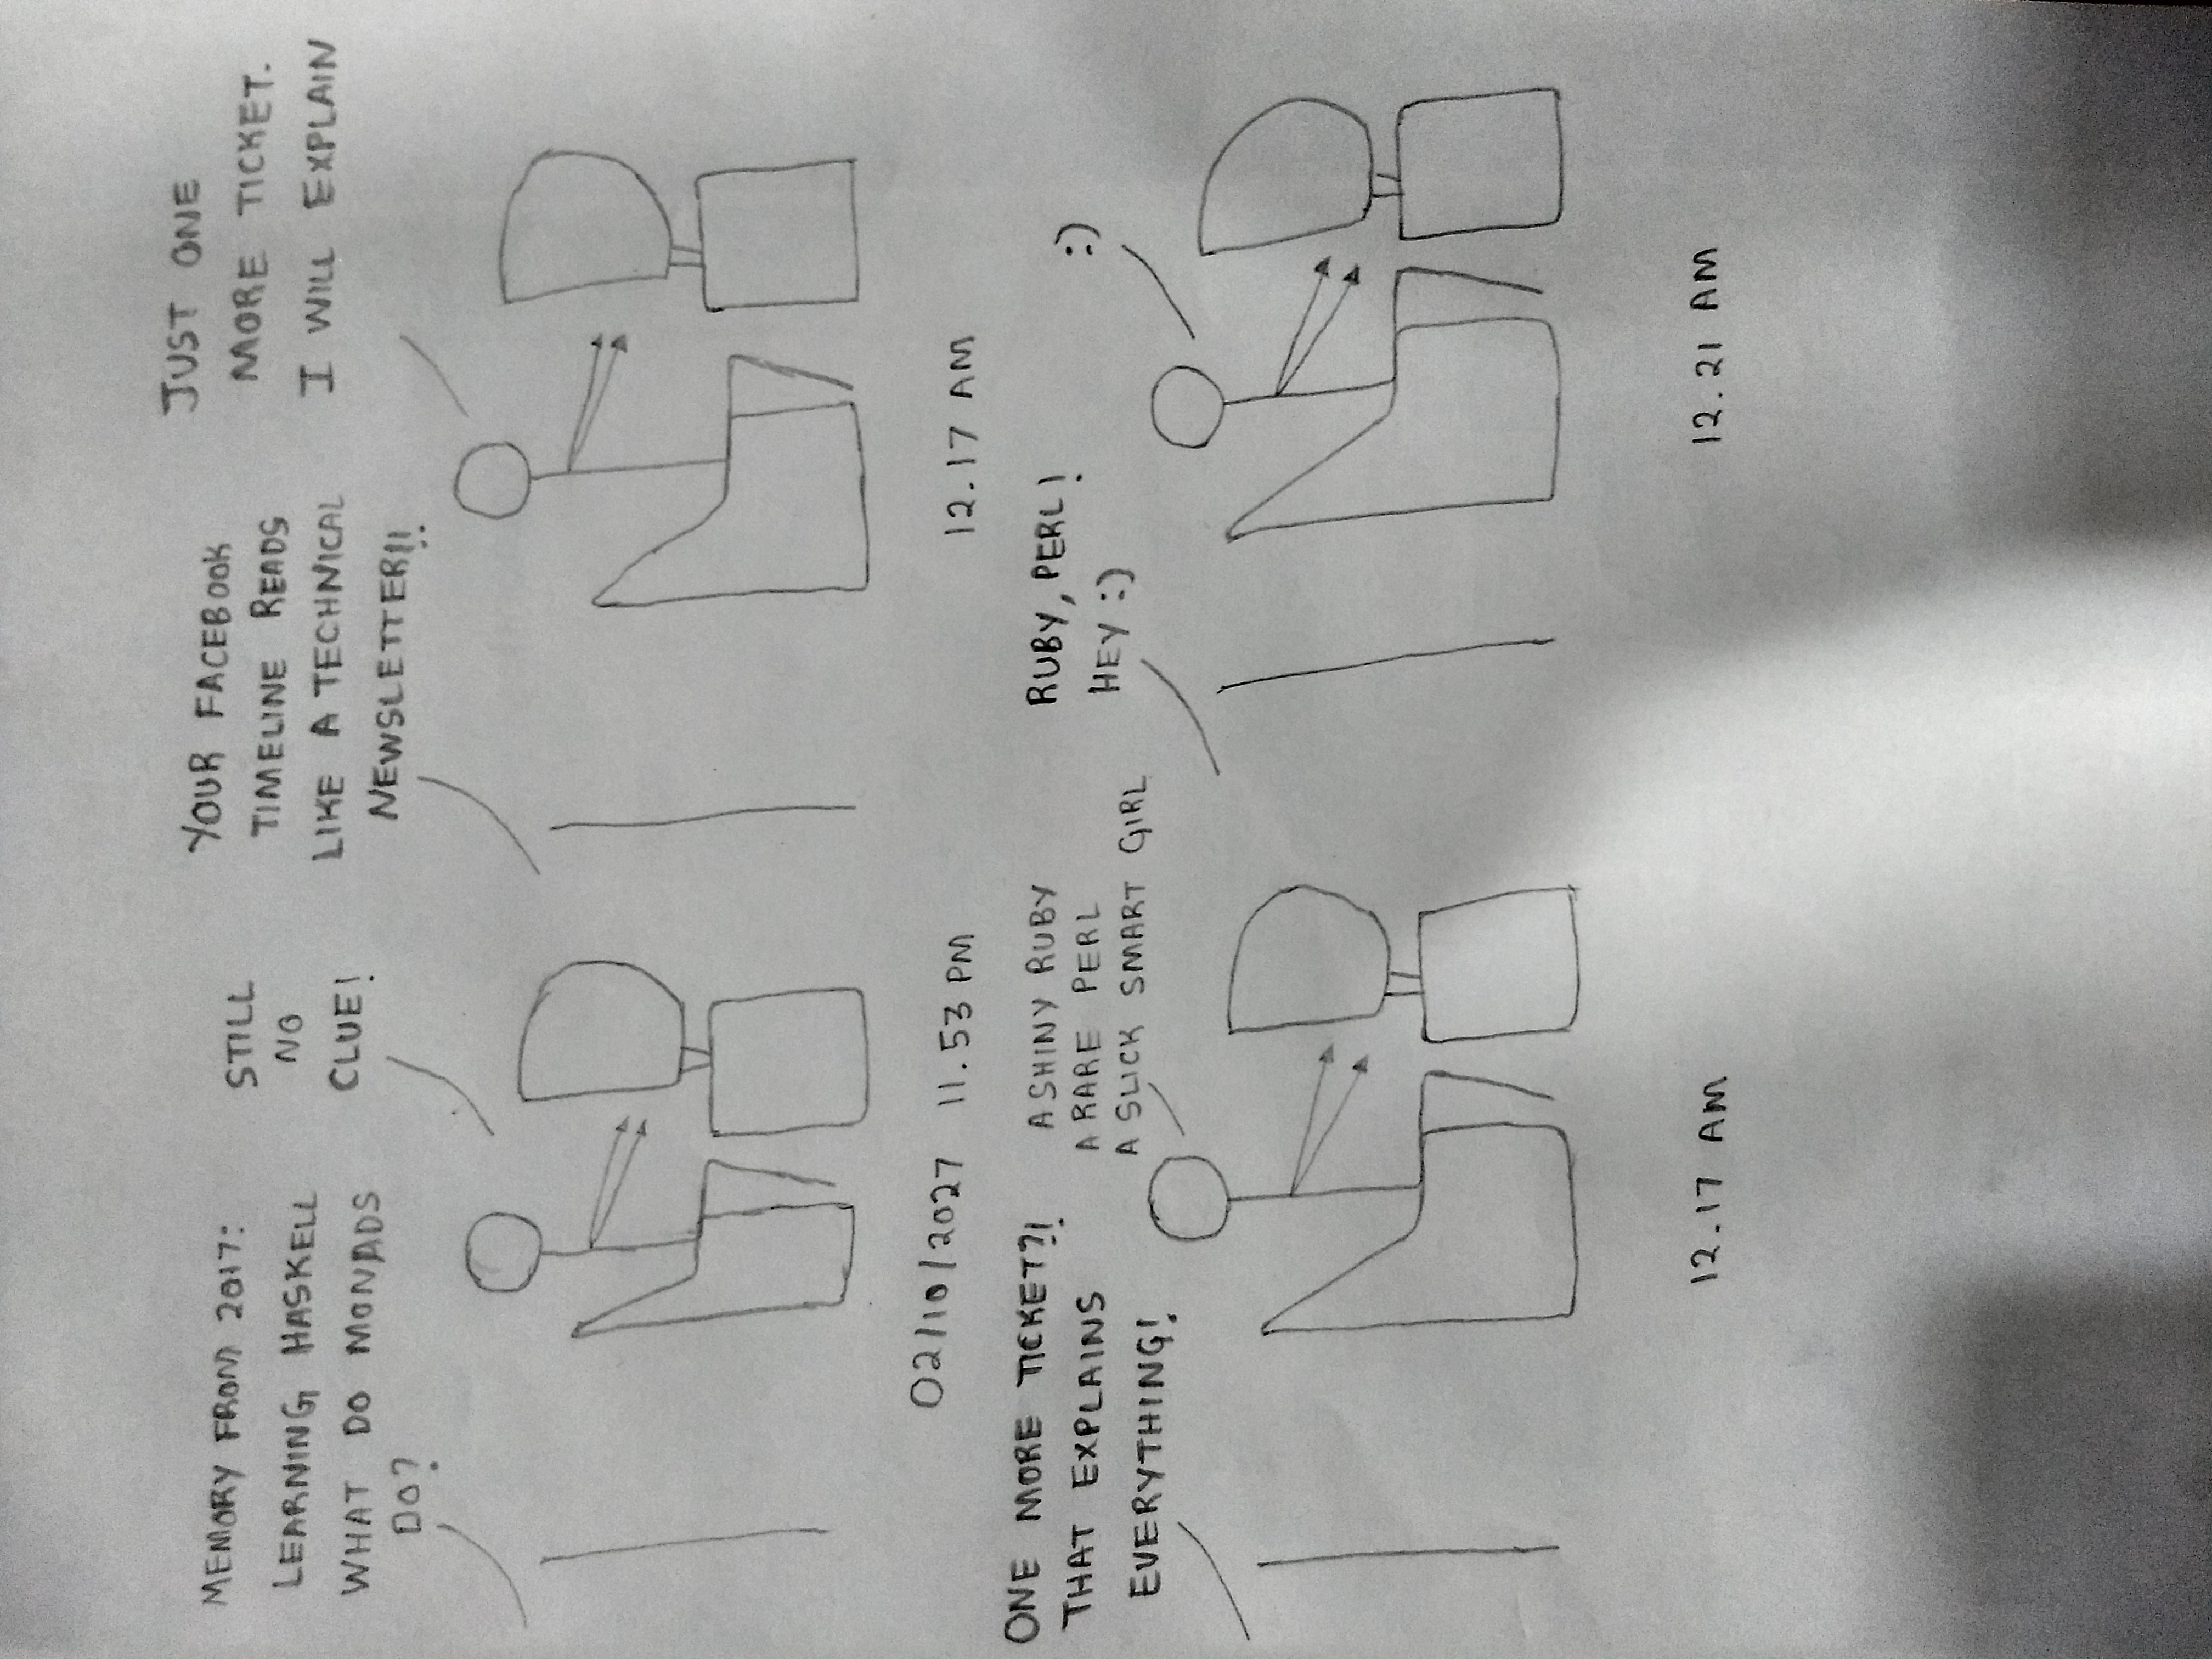 MEMORY FROM 2017:
LEARNING HASKELL
WHAT DO MONADS
DO?
STILL
NO
CLUE!
02/10/2027 11.53 PM
YOUR FACEBOOK
TIMELINE READS
LIKE A TECHNICAL
NEWSLETTER!!
JUST ONE
MORE TICKET.
I WILL EXPLAIN
12.17 AM
ONE MORE TICKET?!
THAT EXPLAINS
EVERYTHING!
A SHINY RUBY
A RARE PERL
A SLICK SMART GIRL
12.17 AM
RUBY, PERL!
HEY :)
:)
12.21 AM